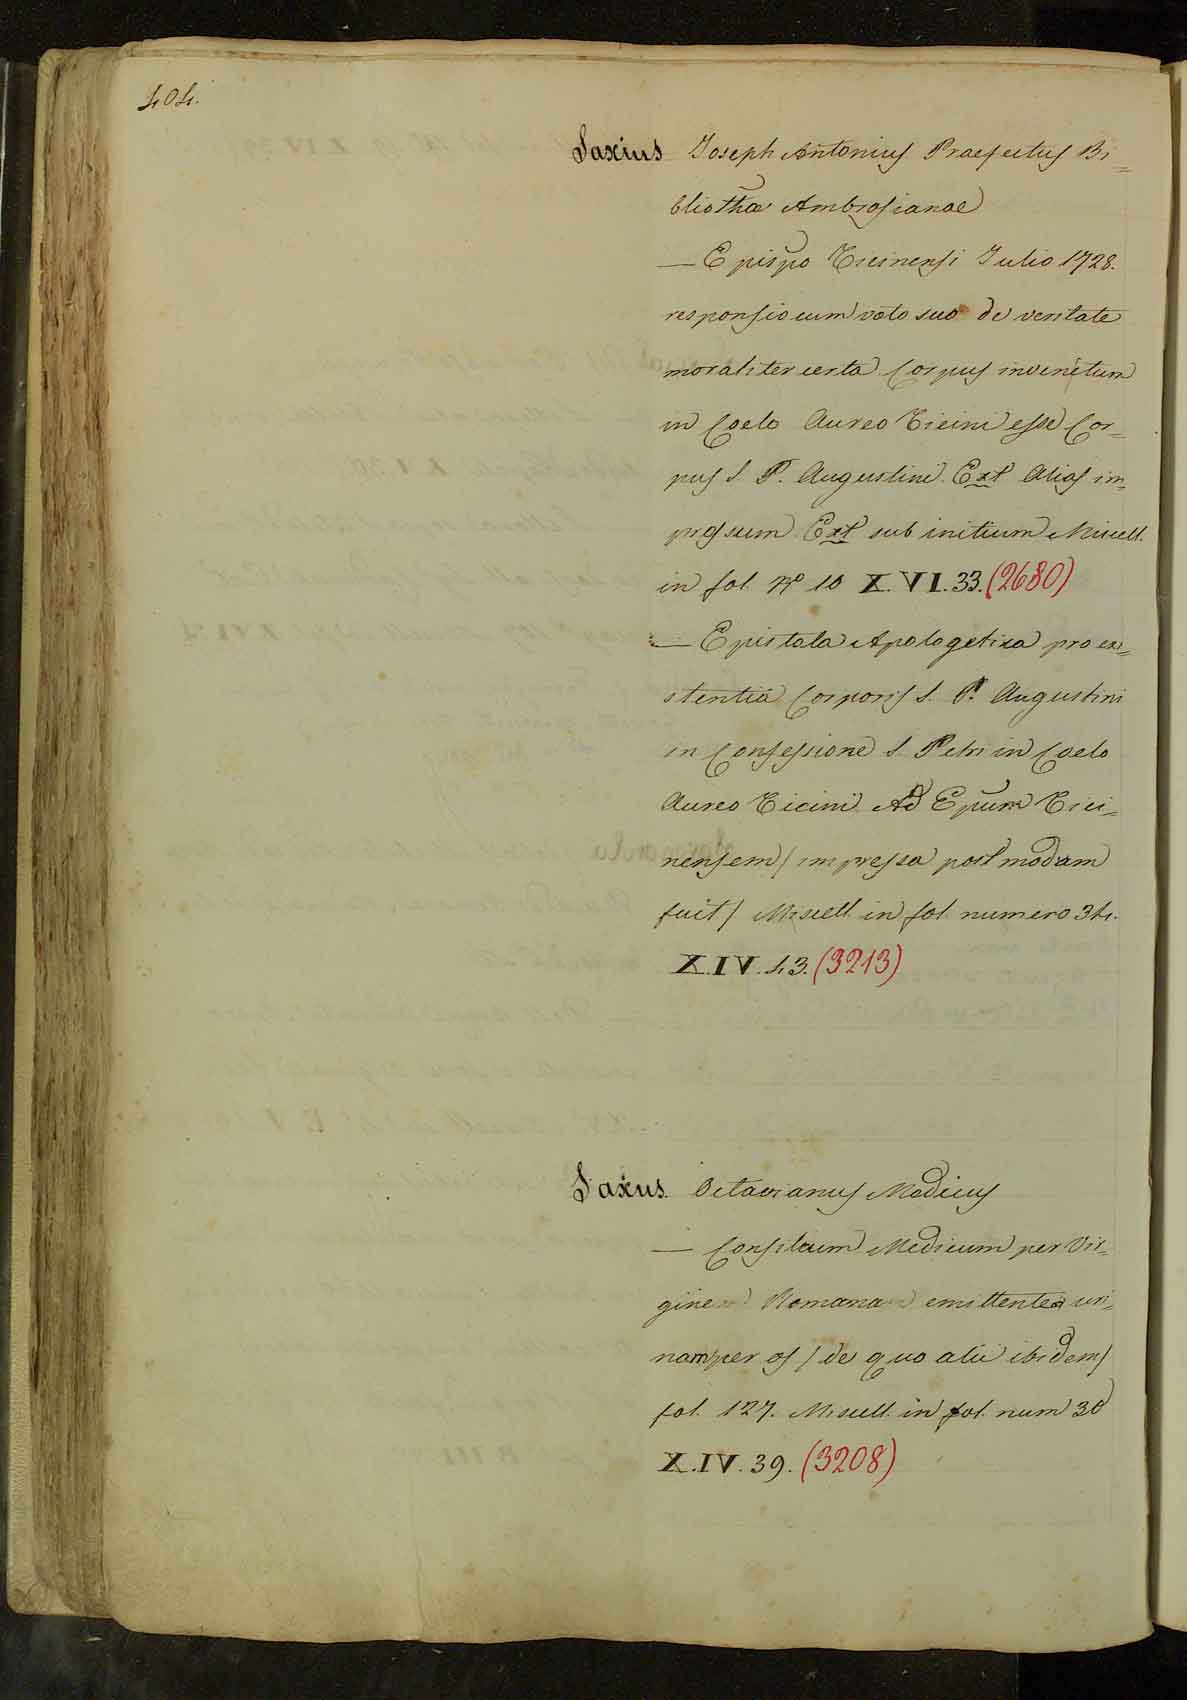 404.
Saxius Joseph Antonius Praefectus Bi=
bliothae Ambrosianae
— Epispo Ticinensi Julio 1728.
responsio cum voto suo de veritate
moraliter certa Corpus invenctum
in Coelo Aureo Ticini esse Cor=
pus S. P. Augustini Ext alias im=
presum Ext sub initium Miscell.
in fol. No 10 X. VI. 33. (2680)
— Epistola Apologetica pro exi=
stentia Corporis S. P. Augustini
in Confessione S. Petri in Coelo
Aureo Ticini Ad Epum Tici=
nensem / impressa post modum
fuit / Miscell. in fol. numero 34.
X. IV. 43. (3213)
Saxus. Octavianus Medicus
— Consilium Medicum per Vir=
gine Romana emittente uri=
nam per os / de quo alii ibidem /
fol. 127. Miscell. in fol. num 30
X. IV. 39. (3208)